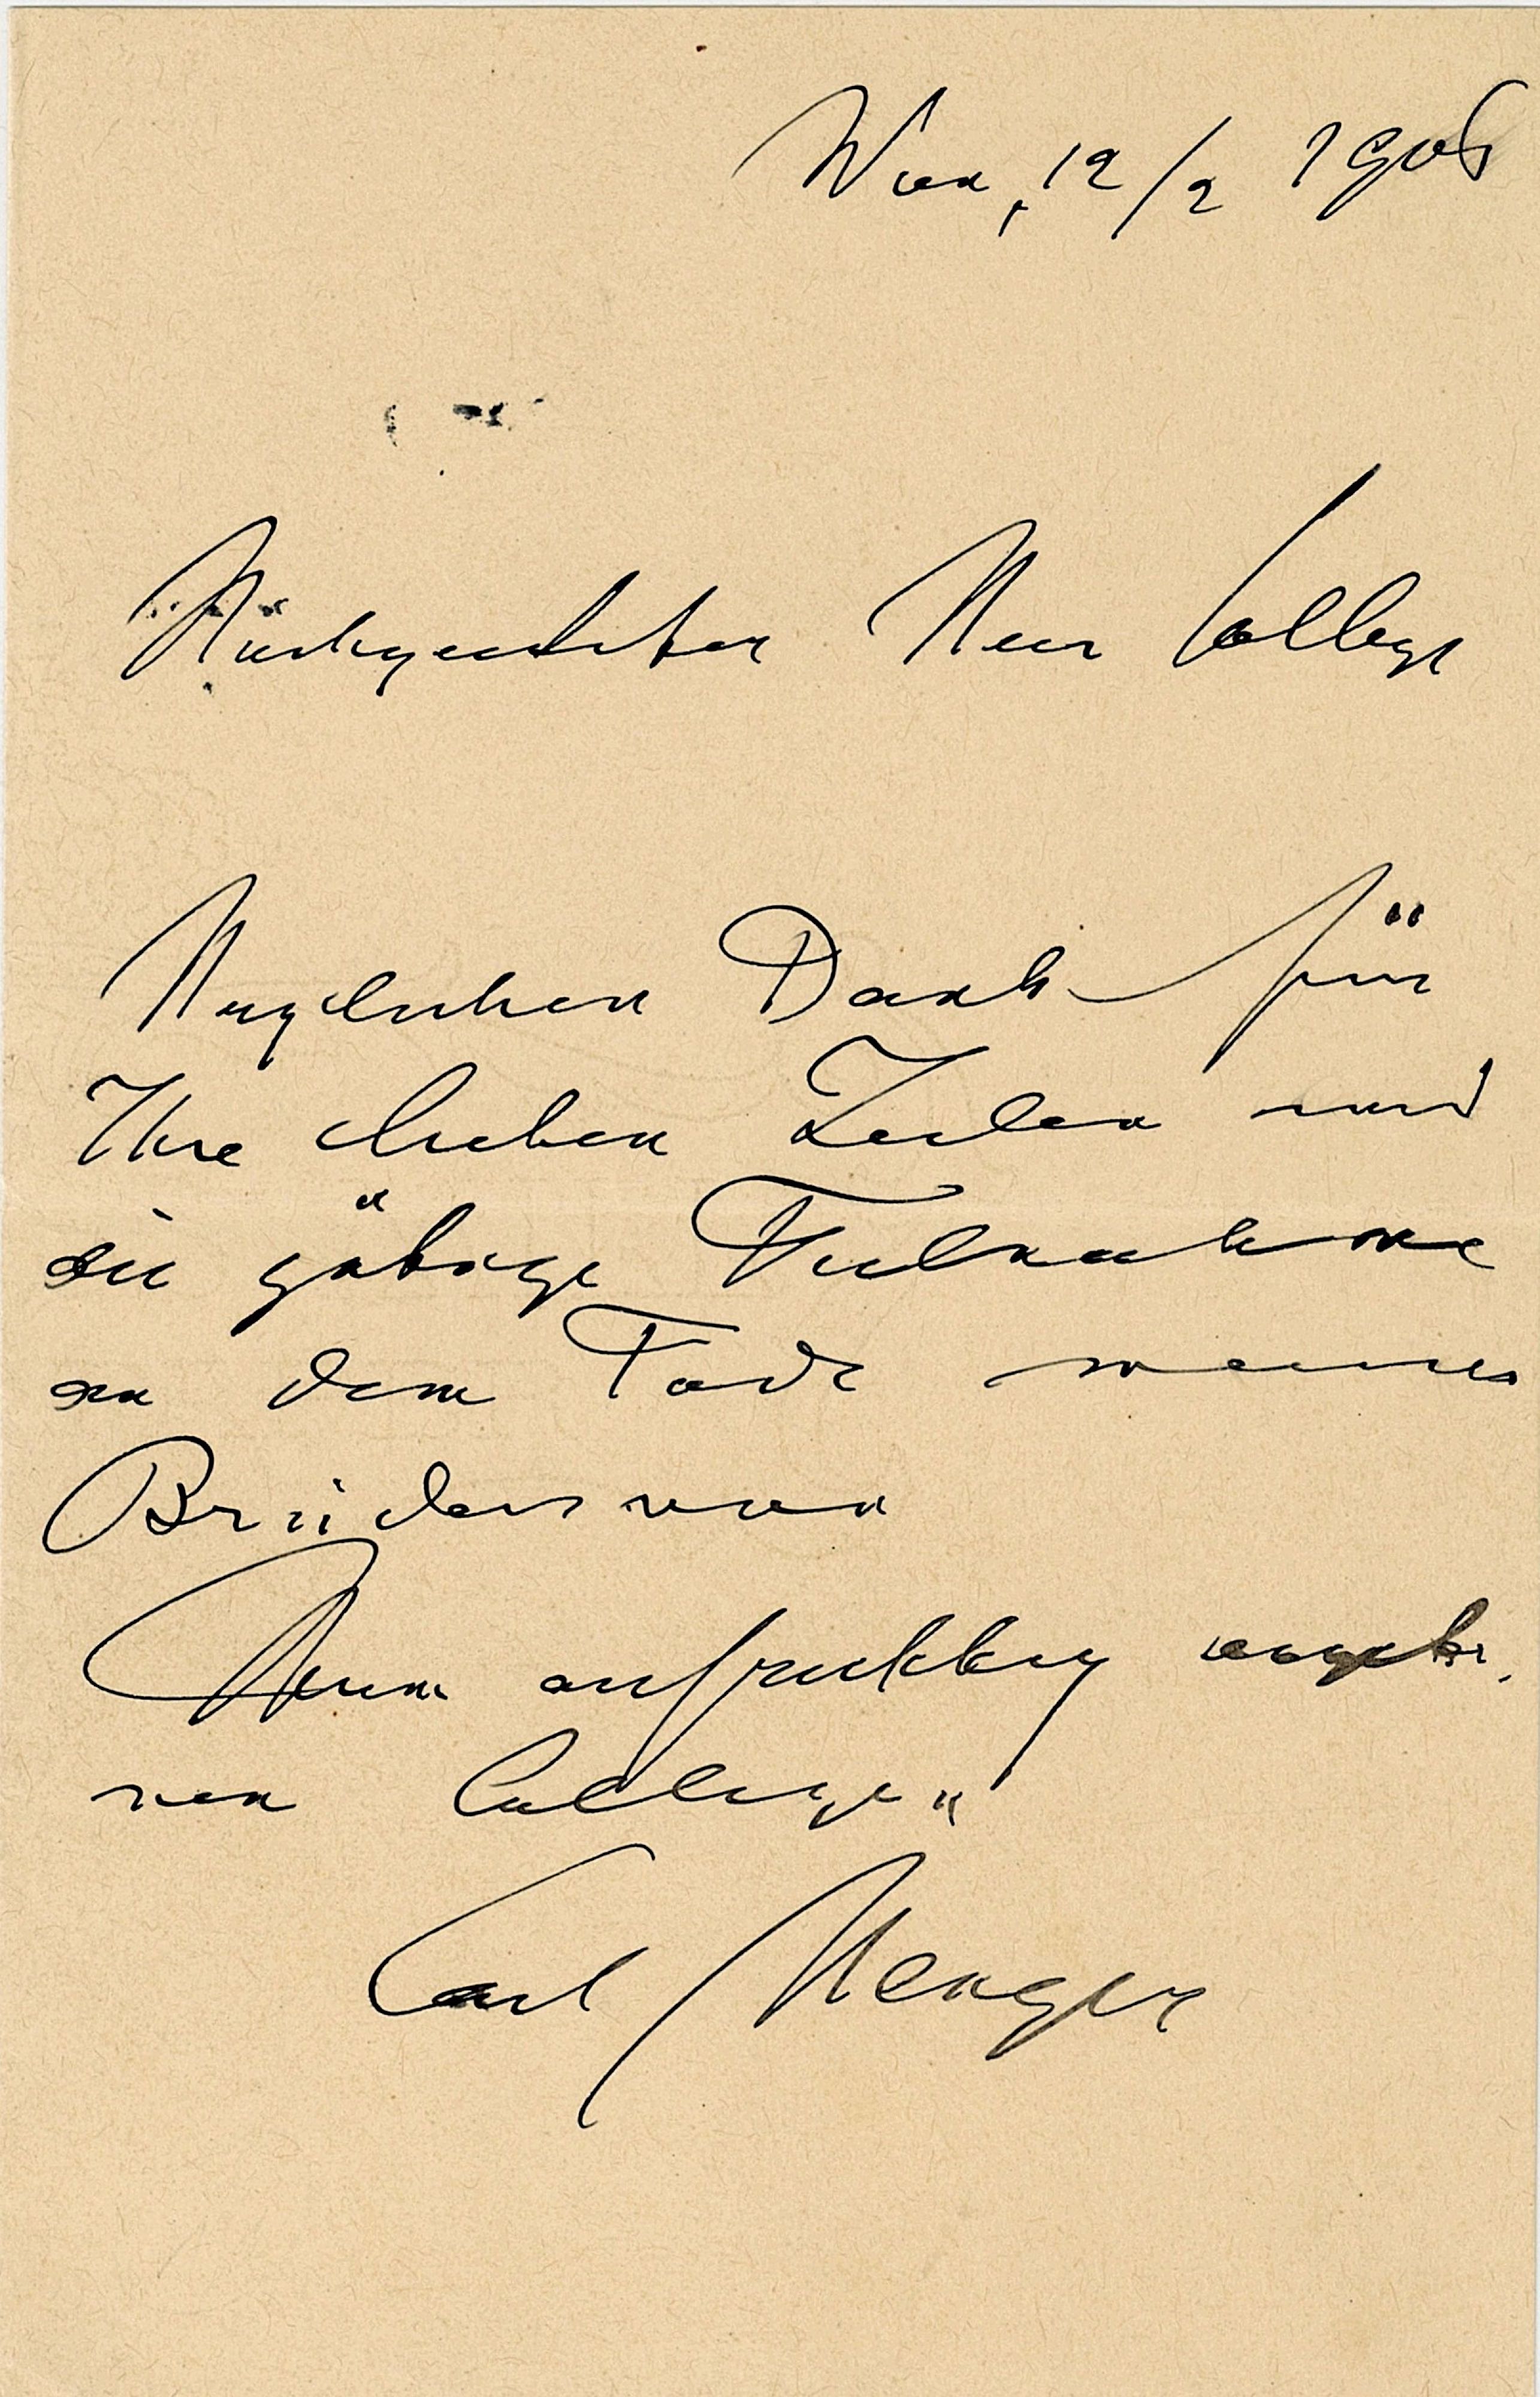 Wien, 12/2 1906
Hochgeehrter Herr College
Herzlichen Dank für
Ihre lieben Zeilen und
die gütige Teilnahme
an dem Tode meines
Bruders von
Ihrem aufrichtig ergebe-
nen Collegen
Carl Menger